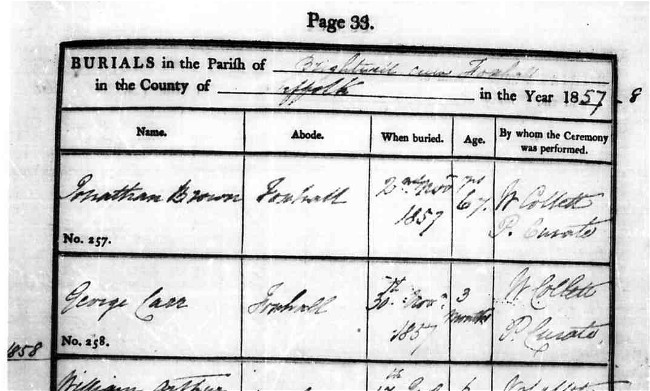 Page 33.
BURIALS in the Parish of Brightwell cum Foxhall
in the County of Suffolk in the Year 1857-8
Name. Abode. When buried. Age. By whom the Ceremony was performed.
Jonathan Brown Foxhall 2nd Novr 1857 67 yrs. W Collett P. Curate
No. 257.
George Carr Foxhall 30th Novr 1857 3 Months W Collett P. Curate
No. 258.
1858
William Arthur